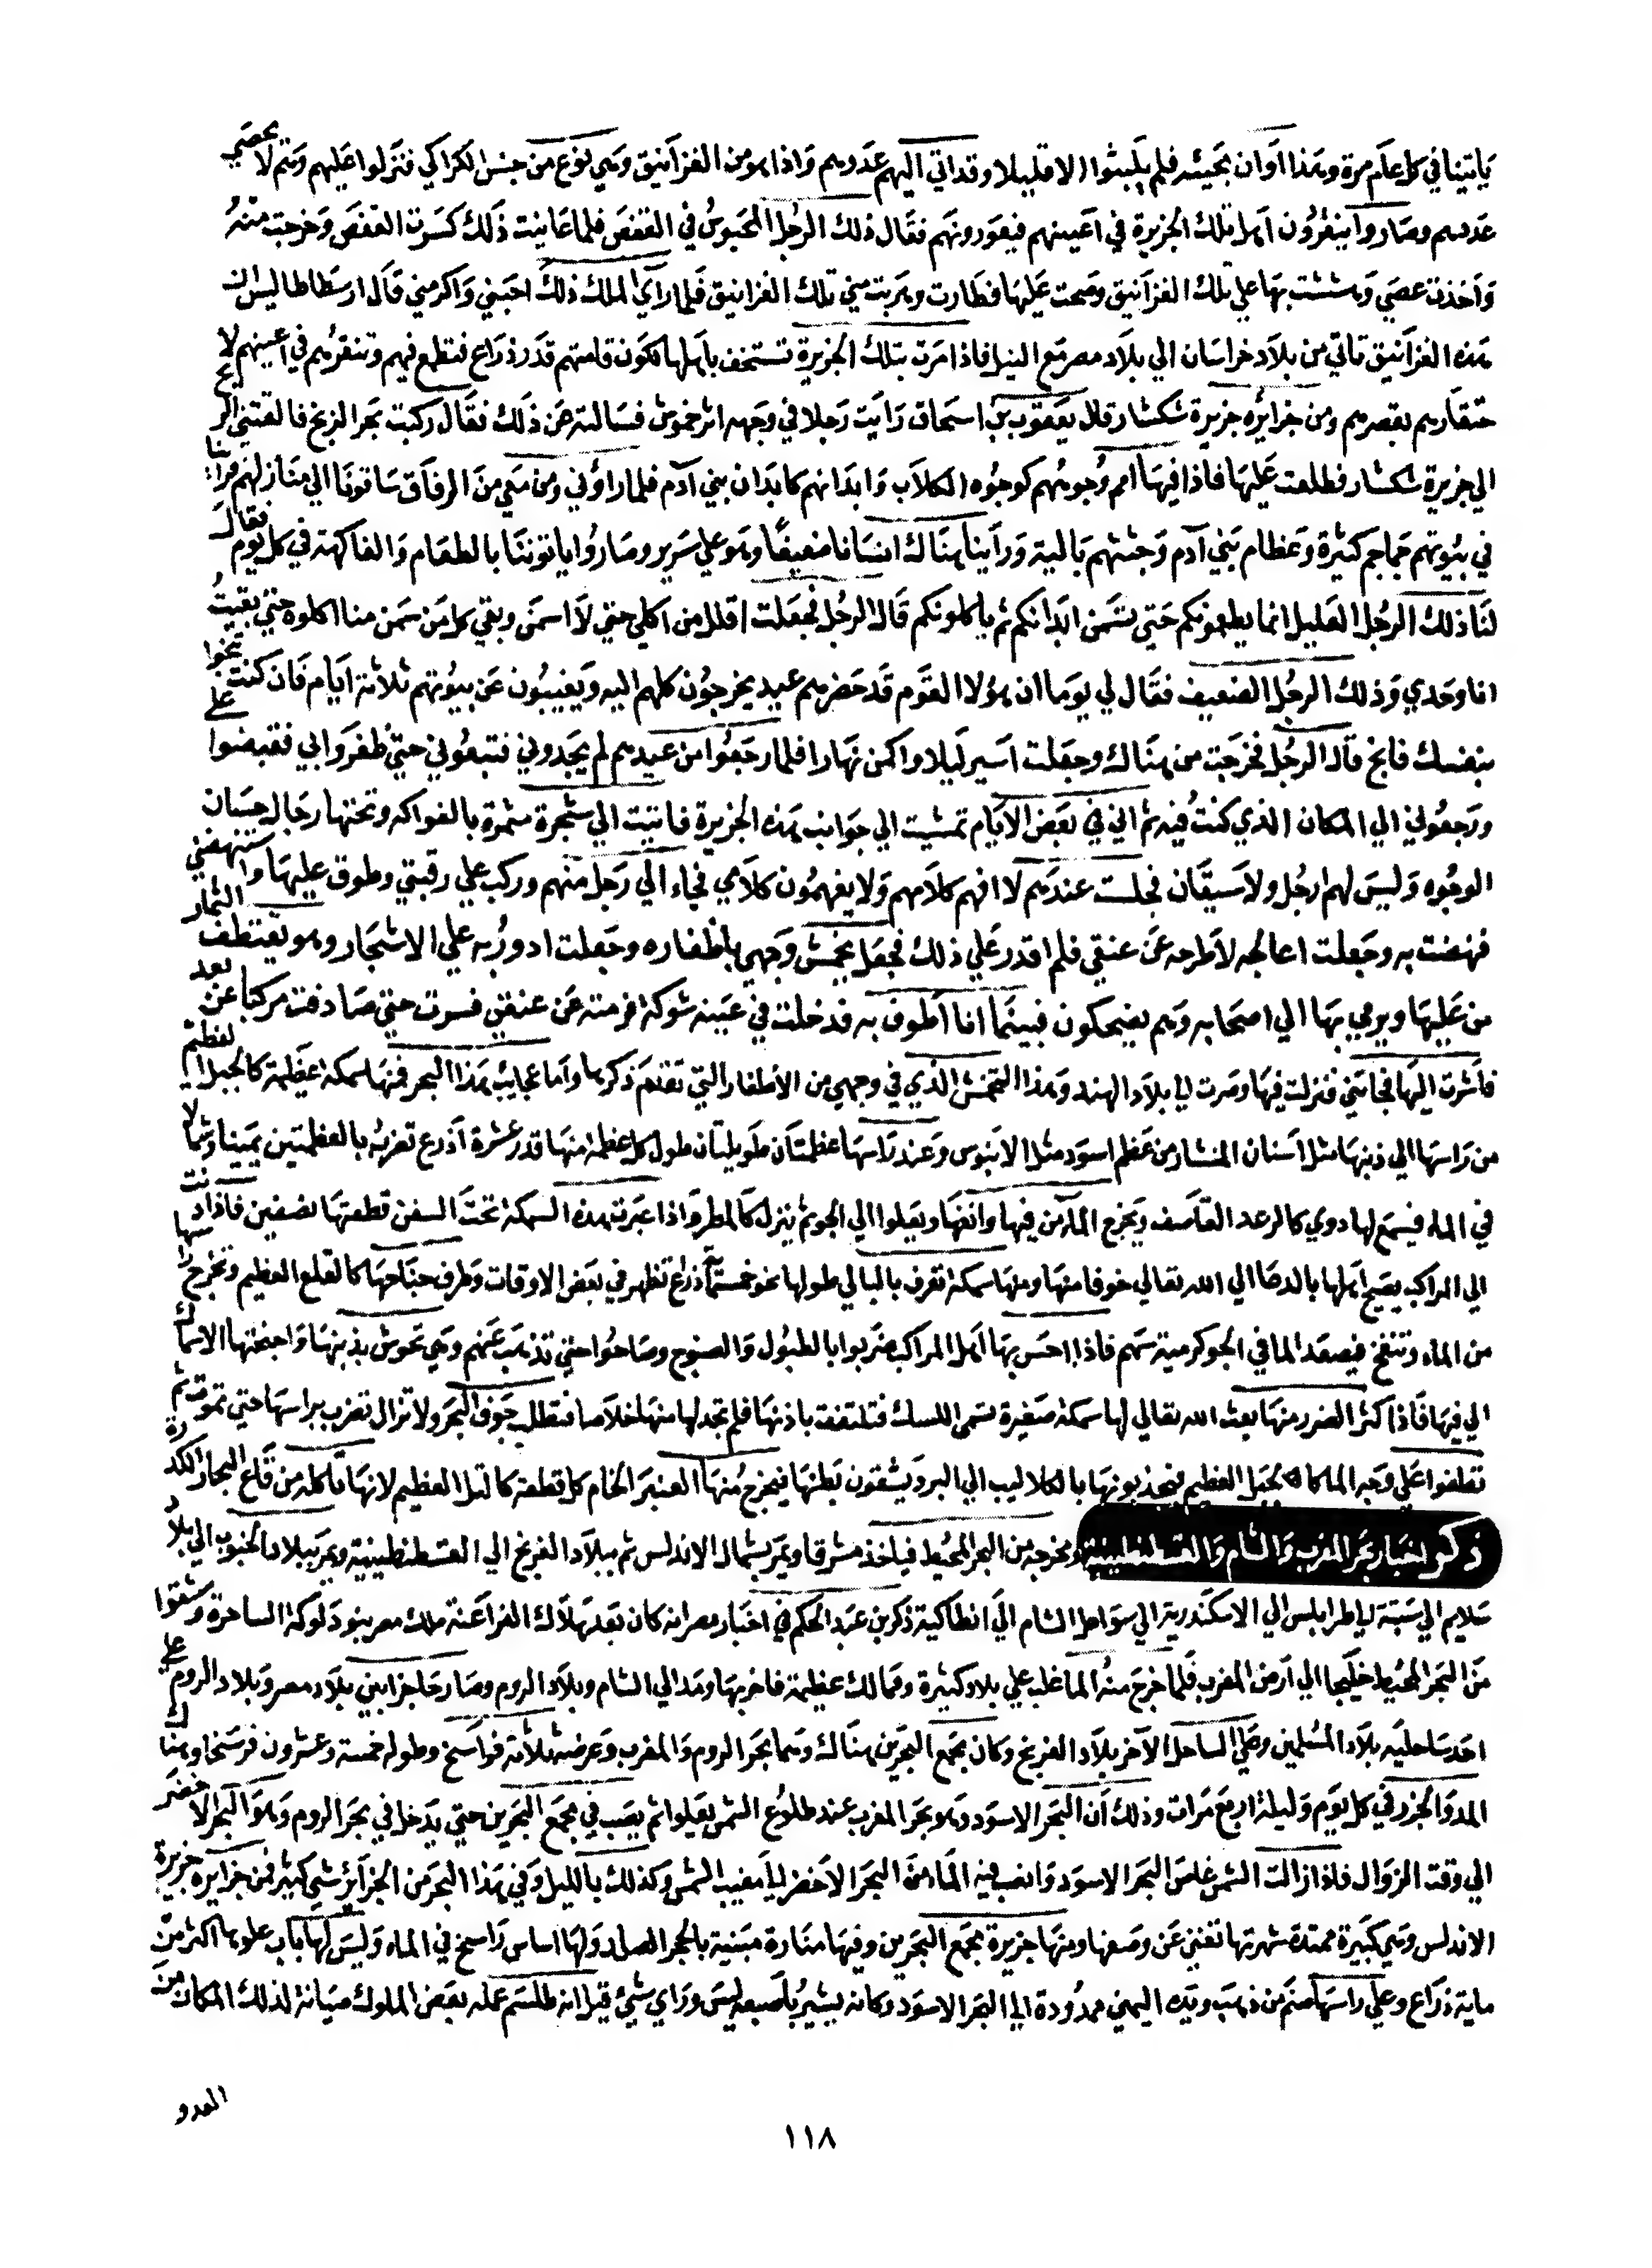 ياتينا في كل عام مرة وهذا اوان مجيئه فلم يلبثوا الا قليلا وقد اتي اليهم عدوهم واذا هو من الغرانيق وهي نوع من جنس الكراكي فنزلوا عليهم وهم لا يحصي
عددهم وصاروا ينقرون اهل تلك الجزيرة في اعينهم فيعورونهم فقال ذلك الرجل المحبوس في القفص فلما عاينت ذلك كسرت القفص وخرجت منه
واخذت عصي وهششت بها علي تلك الغرانيق وصحت عليها فطارت وهربت مني تلك الغرانيق فلما راي الملك ذلك احبني واكرمني قال ارسطاطاليس ان
هذه الغرانيق تاتي من بلاد خراسان الي بلاد مصر مع النيل فاذا مرت بتلك الجزيرة تستخف باهلها لكون قامتهم قدر ذراع فتطمع فيهم وتنقرهم في اعينهم لا
حتقارهم بقصرهم ومن جزائره جزيرة شكشار قال يعقوب بن اسحاق رايت رجلا في وجهه اثر خموش فسالته عن ذلك فقال ركبت بحر الزنج فالقتني الريح
الي جزيرة شكشار فطلعت عليها فاذا فيها امم وجوههم كوجوه الكلاب وابدانهم كابدان بني آدم فلما راوني ومن معي من الرفاق ساقونا الي منازلهم فراينا
في بيوتهم جماجم كثيرة وعظام بني آدم وجثثهم بالية وراينا هناك انسانا ضعيفا وهو علي سرير وصاروا ياتوننا بالطعام والفاكهة في كل يوم فقال
لنا ذلك الرجل العليل انما يطعمونكم حتي تسمن ابدانكم ثم ياكلونكم قال الرجل فجعلت اقلل من اكلي حتي لا اسمن وبقي كل من سمن منا اكلوه حتي بقيت
انا وحدي وذلك الرجل الضعيف فقال لي يوما ان هؤلا القوم قد حضرهم عيد يخرجون كلهم اليه ويغيبون عن بيوتهم ثلاثة ايام فان كنت تنجوا
بنفسك فانج قال الرجل فخرجت من هناك وجعلت اسير ليلا واكمن نهارا فلما رجعوا من عيدهم لم يجدوني فتبعوني حتي ظفروا بي فقبضوا علي
ورجعوني الي المكان الذي كنت فيه ثم اني في بعض الايام تمشيت الي جوانب هذه الجزيرة فاتيت الي شجرة مثمرة بالفواكه وتحتها رجال حسان
الوجوه وليس لهم ارجل ولا سيقان فجلست عندهم لا افهم كلامهم ولا يفهمون كلامي فجاء الي رجل منهم وركب علي رقبتي وطوق عليها واستنهضني
فنهضت به وجعلت اعالجه لاطرحه عن عنقي فلم اقدر علي ذلك فجعل يخمش وجهي باظفاره وجعلت ادور به علي الاشجار وهو يقتطف الثمار
من عليها ويرمي بها الي اصحابه وهم يضحكون فبينما انا اطوف به فدخلت في عينه شوكة فرمته عن عنقي فسرت حتي صادفت مركبا عن بعد
فاشرت اليها فجاتني فنزلت فيها وصرت الي بلاد الهند وهذا التخمش الذي في وجهي من الاظفار التي تقدم ذكرها واما عجايب هذا البحر فمنها سمكة عظيمة كالجبل العظيم
من راسها الي ذنبها مثل اسنان المنشار من عظم اسود مثل الابنوس وعند راسها عظمتان طويلتان طول كل عظمة منها قدر عشرة اذرع تضرب بالعظمتين يمينا وشمالا
في الماء فيسمع لها دوي كالرعد القاصف ويخرج الماء من فيها وانفها ويعلوا الي الجو ثم ينزل كالمطر واذا عبرت هذه السمكة تحت السفن قطعتها نصفين فاذا دنت
الي المراكب يصيح اهلها بالدعا الي الله تعالي خوفا منها ومنها سمكة تعرف بالبالي طولها نحو خمسماية ذراع تظهر في بعض الاوقات وطرف جناحها كالقلع العظيم وتخرج راسها
من الماء وتنفخ فيصعد الما في الجو كرمية سهم فاذا احس بها اهل المراكب ضربوا بالطبول والصنوج وصاحوا حتي تذهب عنهم وهي تحوش بذنبها واجنحتها الاسماك
الي فيها فاذا كثر الضرر منها بعث الله تعالي لها سمكة صغيرة تسمي اللسك فتلتفت باذنها فلم تجد لها منها خلاصا فتطلب جوف البحر ولا تزال تضرب براسها حتي تموت ثم
تطفوا علي وجه الما كالجبل العظيم فيجذبونها بالكلاليب الي البر ويشقون بطنها فيخرج منها العنبر الخام كل قطعة كالتل العظيم لانها تاكله من قاع البحار الكدرة
ذكر اخبار بحر المغرب والشام والقسطنطينية ومخرجه من البحر المحيط فياخذ مشرقا ويمر بشمال الاندلس ثم ببلاد الفرنج الي القسطنطينية ويمر ببلاد الجنوب الي بلاد
سلايم الي سبتة الي طرابلس الي الاسكندرية الي سواحل الشام الي انطاكية ذكر بن عبد الحكم في اخبار مصر انه كان بعد هلاك الفراعنة ملك مصر بنو دلوكة الساحرة وشقوا
من البحر المحيط خليجا الي ارض المغرب فلما خرج منه الما غلب علي بلاد كثيرة وممالك عظيمة فاخربها ومد الي الشام وبلاد الروم وصار حاجزا بين بلاد مصر وبلاد الروم علي
احد ساحليه بلاد المسلمين وعلي الساحل الآخر بلاد الفرنج وكان مجمع البحرين هناك وهما بحر الروم والمغرب وعرضه ثلاثة فراسخ وطوله خمسة وعشرون فرسخا وهناك
المد والجزر في كل يوم وليلة اربع مرات وذلك ان البحر الاسود وهو بحر المغرب عند طلوع الشمس يعلوا ثم يصب في مجمع البحرين حتي يدخل في بحر الروم وهو البحر الاخضر
الي وقت الزوال فاذا زالت الشمس غاص البحر الاسود وانصب فيه الما من البحر الاخضر الي مغيب الشمس وكذلك بالليل وفي هذا البحر من الجزائر شي كثير فمن جزايره جزيرة
الاندلس وهي كبيرة ممتدة شهرتها تغني عن وصفها ومنها جزيرة مجمع البحرين وفيها منارة مبنية بالحجر الصلد ولها اساس راسخ في الماء وليس لها باب علوها اكثر من
ماية ذراع وعلي راسها صنم من ذهب ويده اليمني ممدودة الي البحر الاسود وكانه يشير باصبعه ليس وراي شئ قيل انه طلسم عمله بعض الملوك صيانة لذلك المكان من
العدو
١١٨